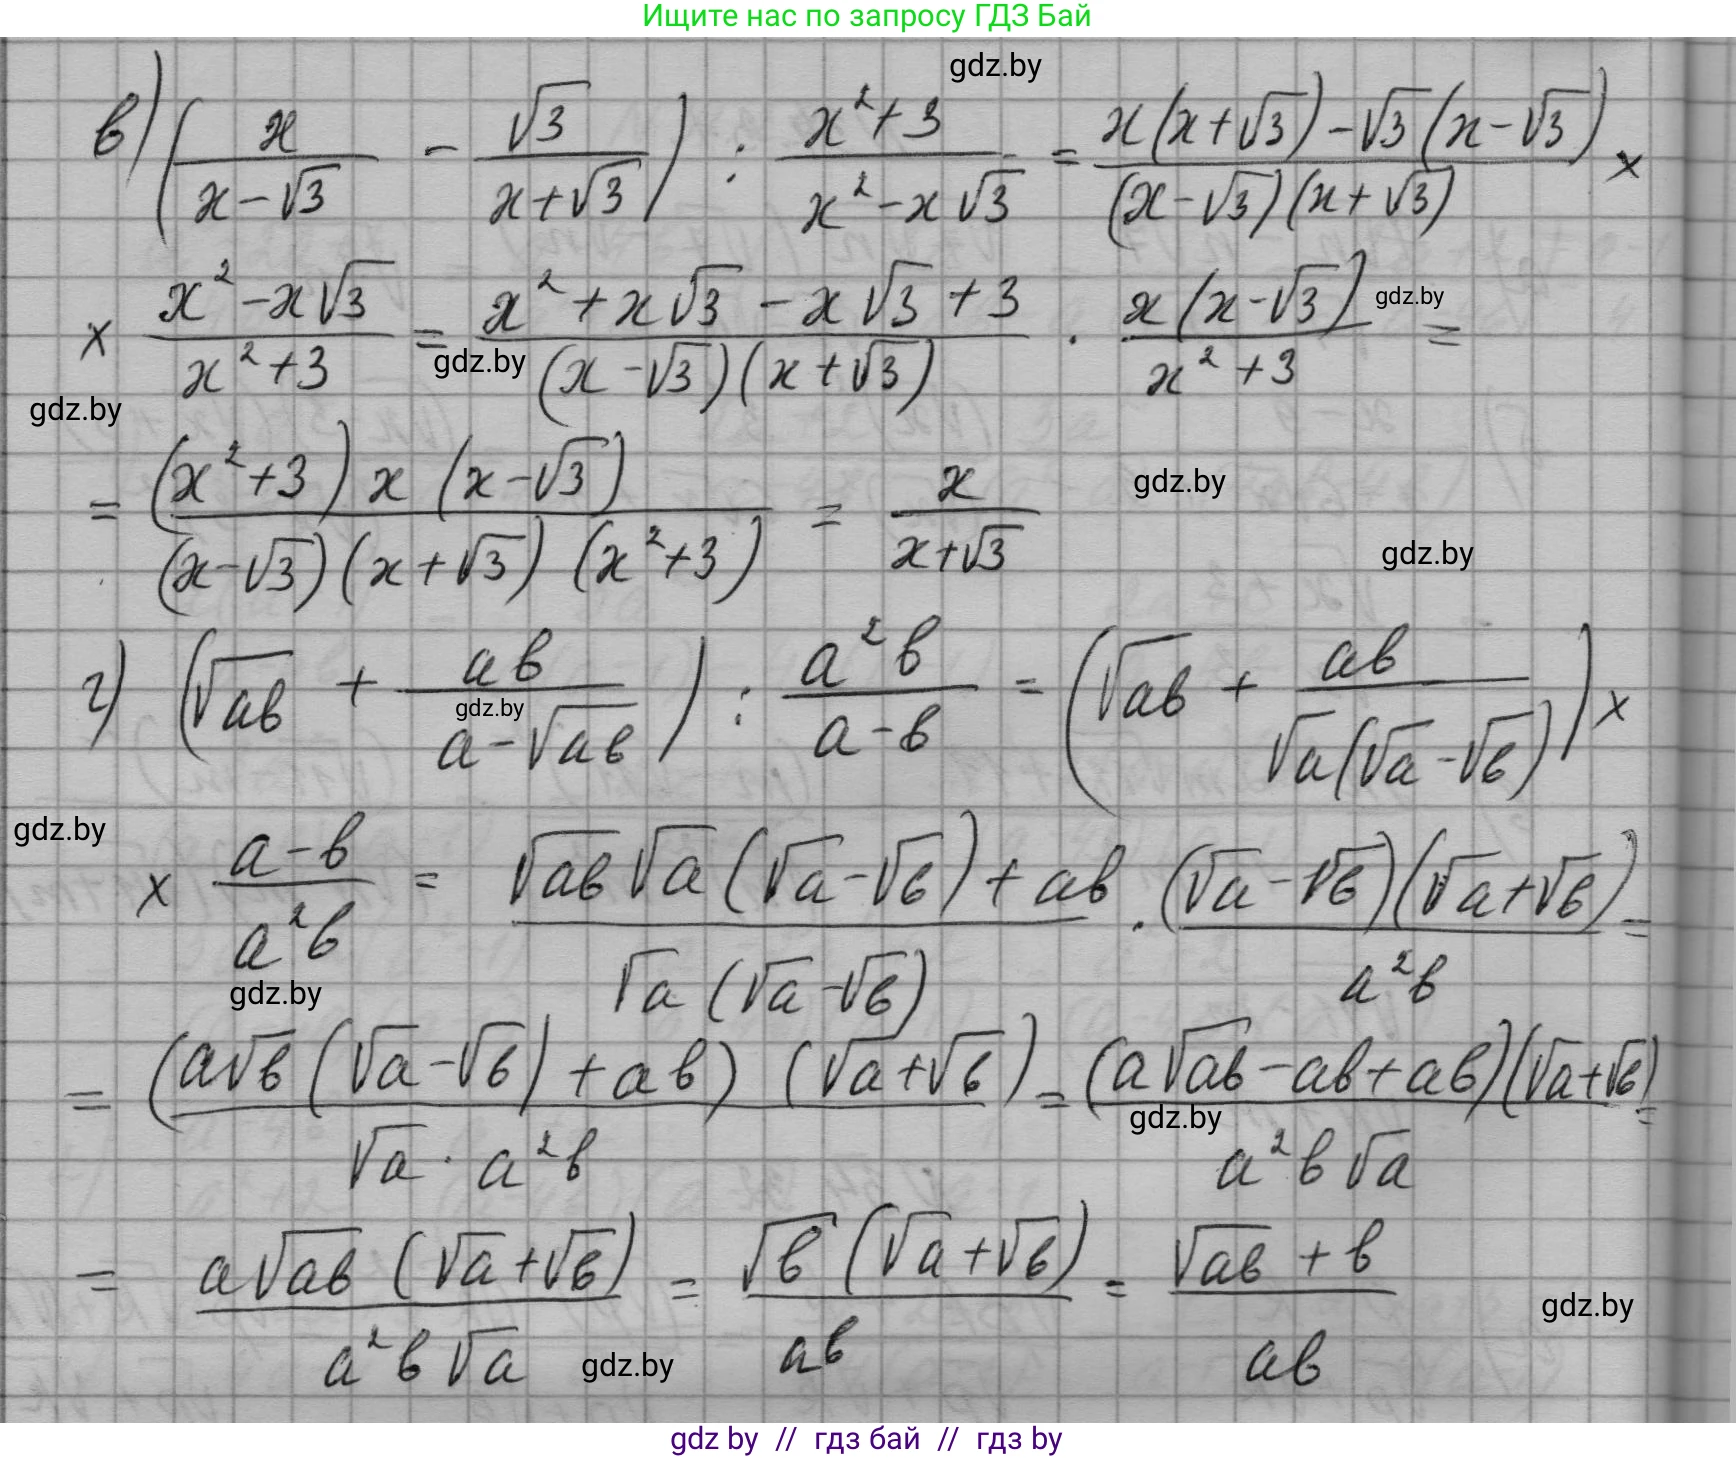 Ищите нас по запросу ГДЗ Бай
gdz.by
в) (x/(x-√3) - √3/(x+√3)) : (x²+3)/(x²-x√3) = (x(x+√3)-√3(x-√3))/((x-√3)(x+√3)) ×
× (x²-x√3)/(x²+3) = (x²+x√3-x√3+3)/((x-√3)(x+√3)) · x(x-√3)/(x²+3) =
gdz.by
gdz.by
gdz.by
= ((x²+3)x(x-√3))/((x-√3)(x+√3)(x²+3)) = x/(x+√3)
gdz.by
gdz.by
г) (√ab + ab/(a-√ab)) : a²b/(a-b) = (√ab + ab/(√a(√a-√b))) ×
gdz.by
gdz.by
× (a-b)/(a²b) = (√ab√a(√a-√b)+ab)/(√a(√a-√b)) · ((√a-√b)(√a+√b))/(a²b) =
gdz.by
= ((a√b(√a-√b)+ab)(√a+√b))/(√a·a²b) = ((a√ab-ab+ab)(√a+√b))/(a²b√a) =
gdz.by
= (a√ab(√a+√b))/(a²b√a) = (√b(√a+√b))/(ab) = (√ab+b)/(ab)
gdz.by
gdz.by
gdz by // гдз бай // гдз by